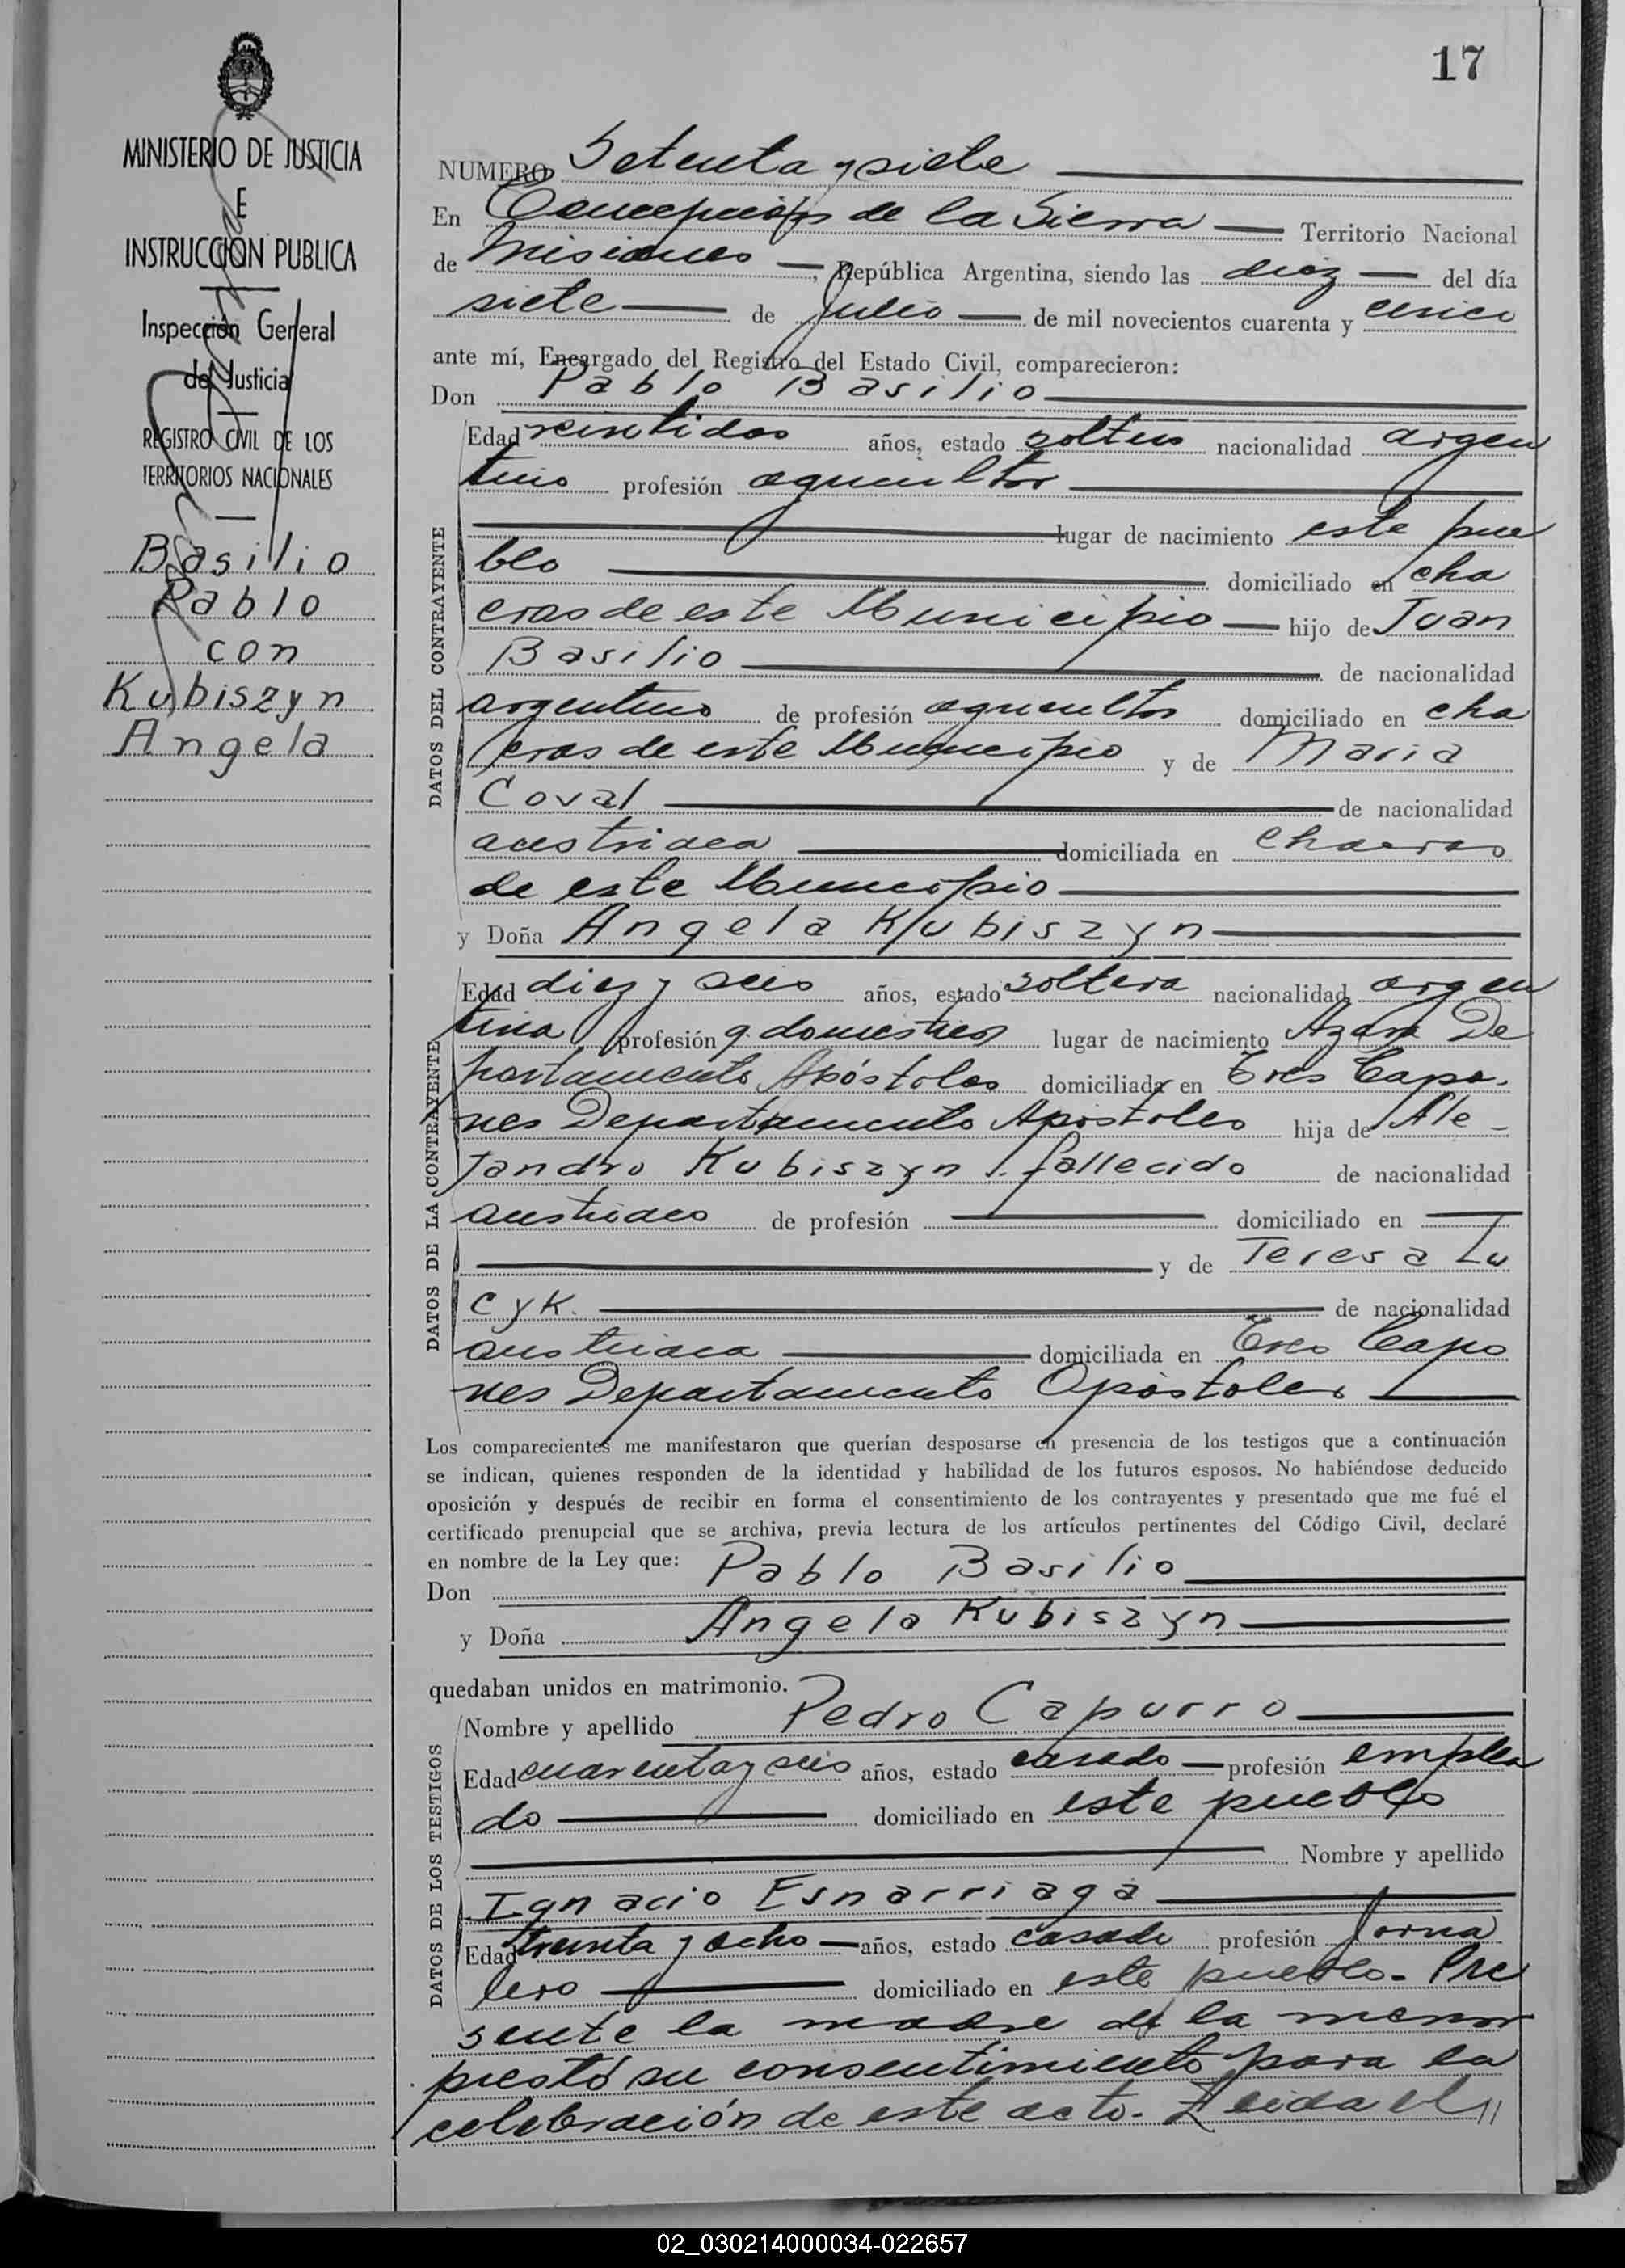 17
MINISTERIO DE JUSTICIA
E
INSTRUCCIÓN PUBLICA
Inspección General
de Justicia
REGISTRO CIVIL DE LOS
TERRITORIOS NACIONALES
Basilio
Pablo
con
Kubiszyn
Angela
NUMERO Setenta y siete
En Concepción de la Sierra Territorio Nacional
de Misiones, República Argentina, siendo las diez del día
siete de Julio de mil novecientos cuarenta y cinco
ante mí, Encargado del Registro del Estado Civil, comparecieron:
Don Pablo Basilio
DATOS DEL CONTRAYENTE
Edad veintidos años, estado soltero nacionalidad argen
tino profesión agricultor
lugar de nacimiento este pue
blo domiciliado en cha
cras de este Municipio hijo de Juan
Basilio de nacionalidad
argentino de profesión agricultor domiciliado en cha
cras de este Municipio y de Maria
Coval de nacionalidad
austriaca domiciliada en chacras
de este Municipio
y Doña Angela Kubiszyn
DATOS DE LA CONTRAYENTE
Edad diez y seis años, estado soltera nacionalidad argen
tina profesión q. domesticos lugar de nacimiento Azara De
partamento Apóstoles domiciliada en Tres Capo-
nes Departamento Apóstoles hija de Ale-
jandro Kubiszyn fallecido de nacionalidad
austriaco de profesión domiciliado en
y de Teresa Lu
cyk. de nacionalidad
austriaca domiciliada en Tres Capo
nes Departamento Apóstoles
Los comparecientes me manifestaron que querían desposarse en presencia de los testigos que a continuación
se indican, quienes responden de la identidad y habilidad de los futuros esposos. No habiéndose deducido
oposición y después de recibir en forma el consentimiento de los contrayentes y presentado que me fué el
certificado prenupcial que se archiva, previa lectura de los artículos pertinentes del Código Civil, declaré
en nombre de la Ley que:
Don Pablo Basilio
y Doña Angela Kubiszyn
quedaban unidos en matrimonio.
DATOS DE LOS TESTIGOS
Nombre y apellido Pedro Capurro
Edad cuarenta y seis años, estado casado profesión emplea
do domiciliado en este pueblo
Nombre y apellido
Ignacio Esnarriaga
Edad treinta y ocho años, estado casado profesión Jorna
lero domiciliado en este pueblo. Pre
sente la madre de la menor
prestó su consentimiento para la
celebración de este acto. Leida el//
02_030214000034-022657